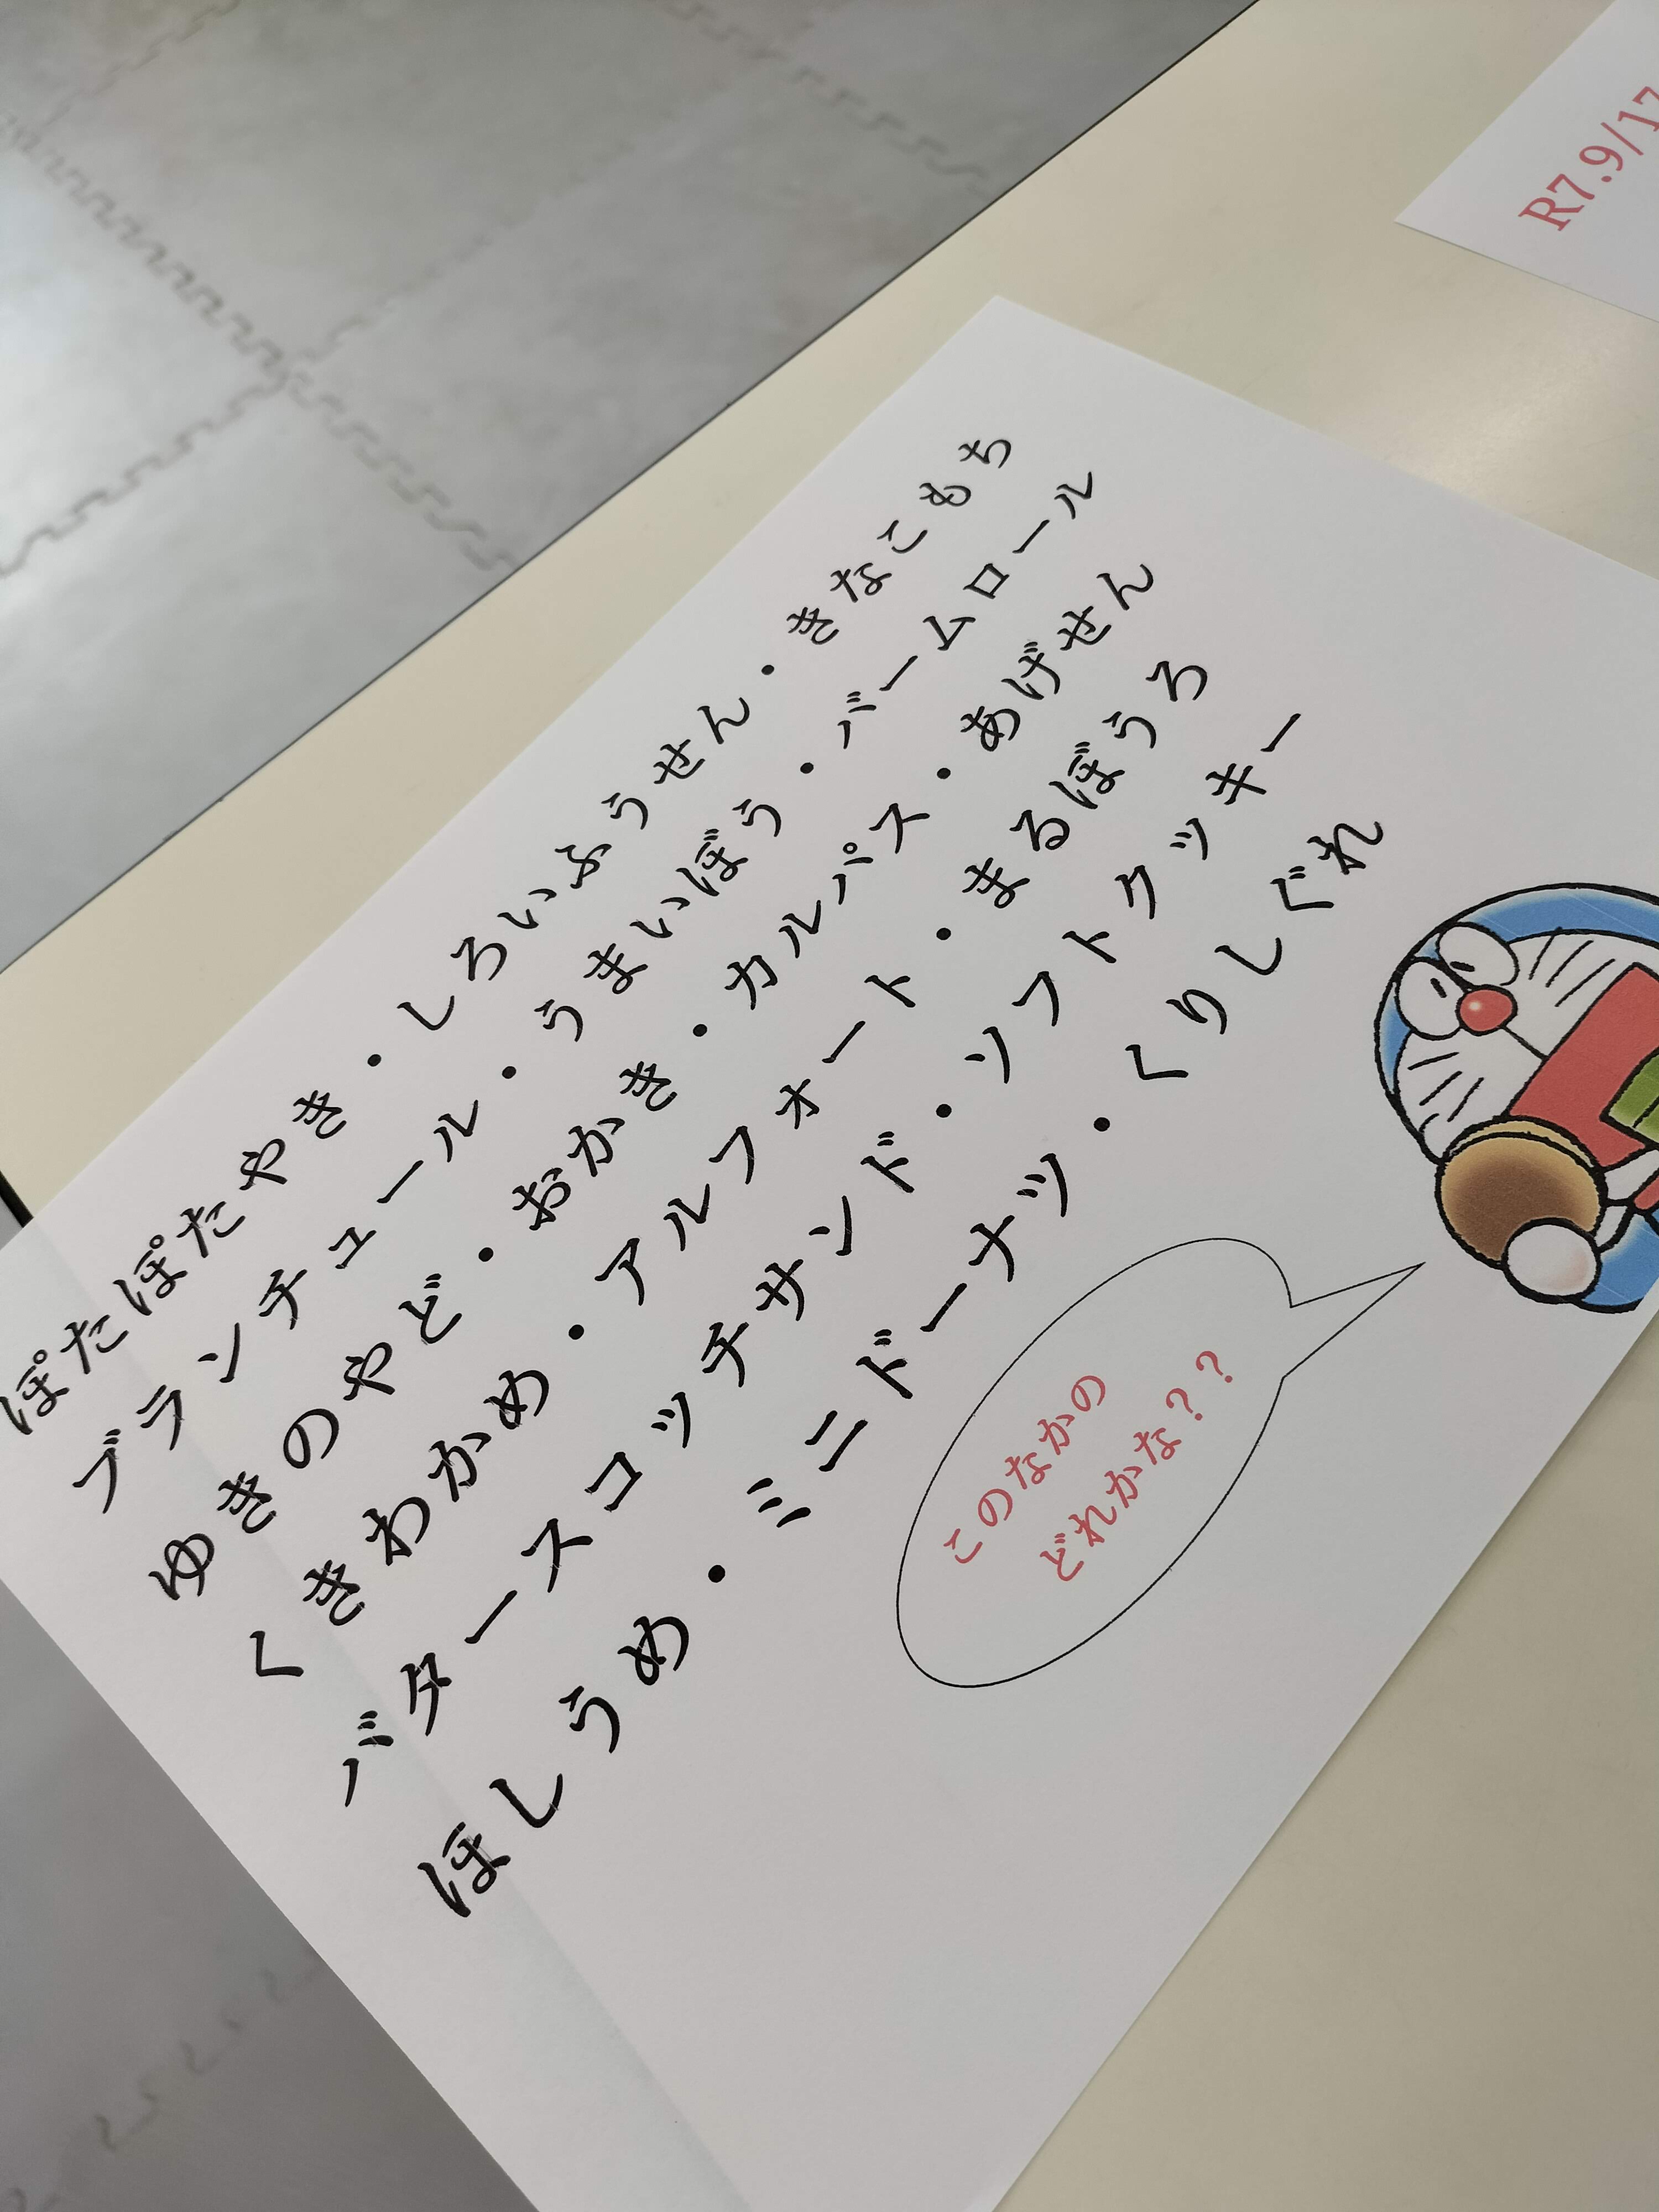 R7.9/17
ぽたぽたやき・しろいふうせん・きなこもち
ブランチュール・うまいぼう・バームロール
ゆきのやど・おかき・カルパス・あげせん
くきわかめ・アルフォート・まるぼうろ
バタースコッチサンド・ソフトクッキー
ほしうめ・ミニドーナツ・くりしぐれ
このなかの
どれかな??